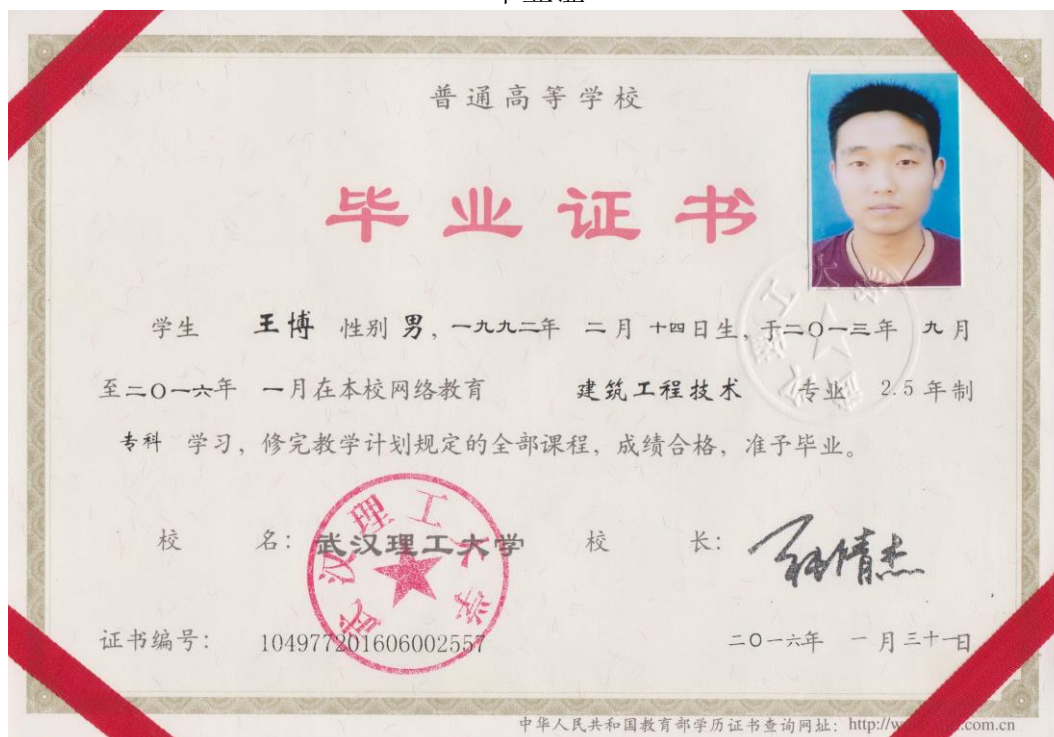 普通高等学校
毕业证书
学生 王博 性别 男，一九九二年 二月 十四日生，于二〇一三年 九月
至二〇一六年 一月在本校网络教育 建筑工程技术 专业 2.5 年制
专科 学习，修完教学计划规定的全部课程，成绩合格，准予毕业。
校 名：武汉理工大学 校 长：
武汉理工大学
证书编号： 104977201606002557 二〇一六年 一月三十一日
中华人民共和国教育部学历证书查询网址：http://w com.cn